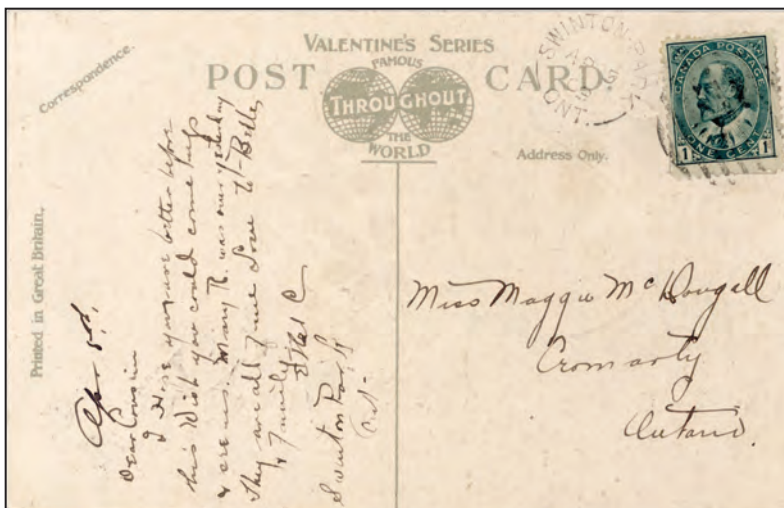 Correspondence.
VALENTINE'S SERIES
FAMOUS
POST CARD
THROUGHOUT
THE
WORLD
Address Only.
Printed in Great Britain.
SWINTON-PARK
ONT.
CANADA POSTAGE
1 ONE CENT 1
Dear Cousin
I Hope you are better before
this Wish you could come up
Mary R. was over yesterday
They are all fine Love to Billy
& Family
Ethel C
Swinton Park
Ont-
Miss Maggie McDougall
Cromarty
Ontario.